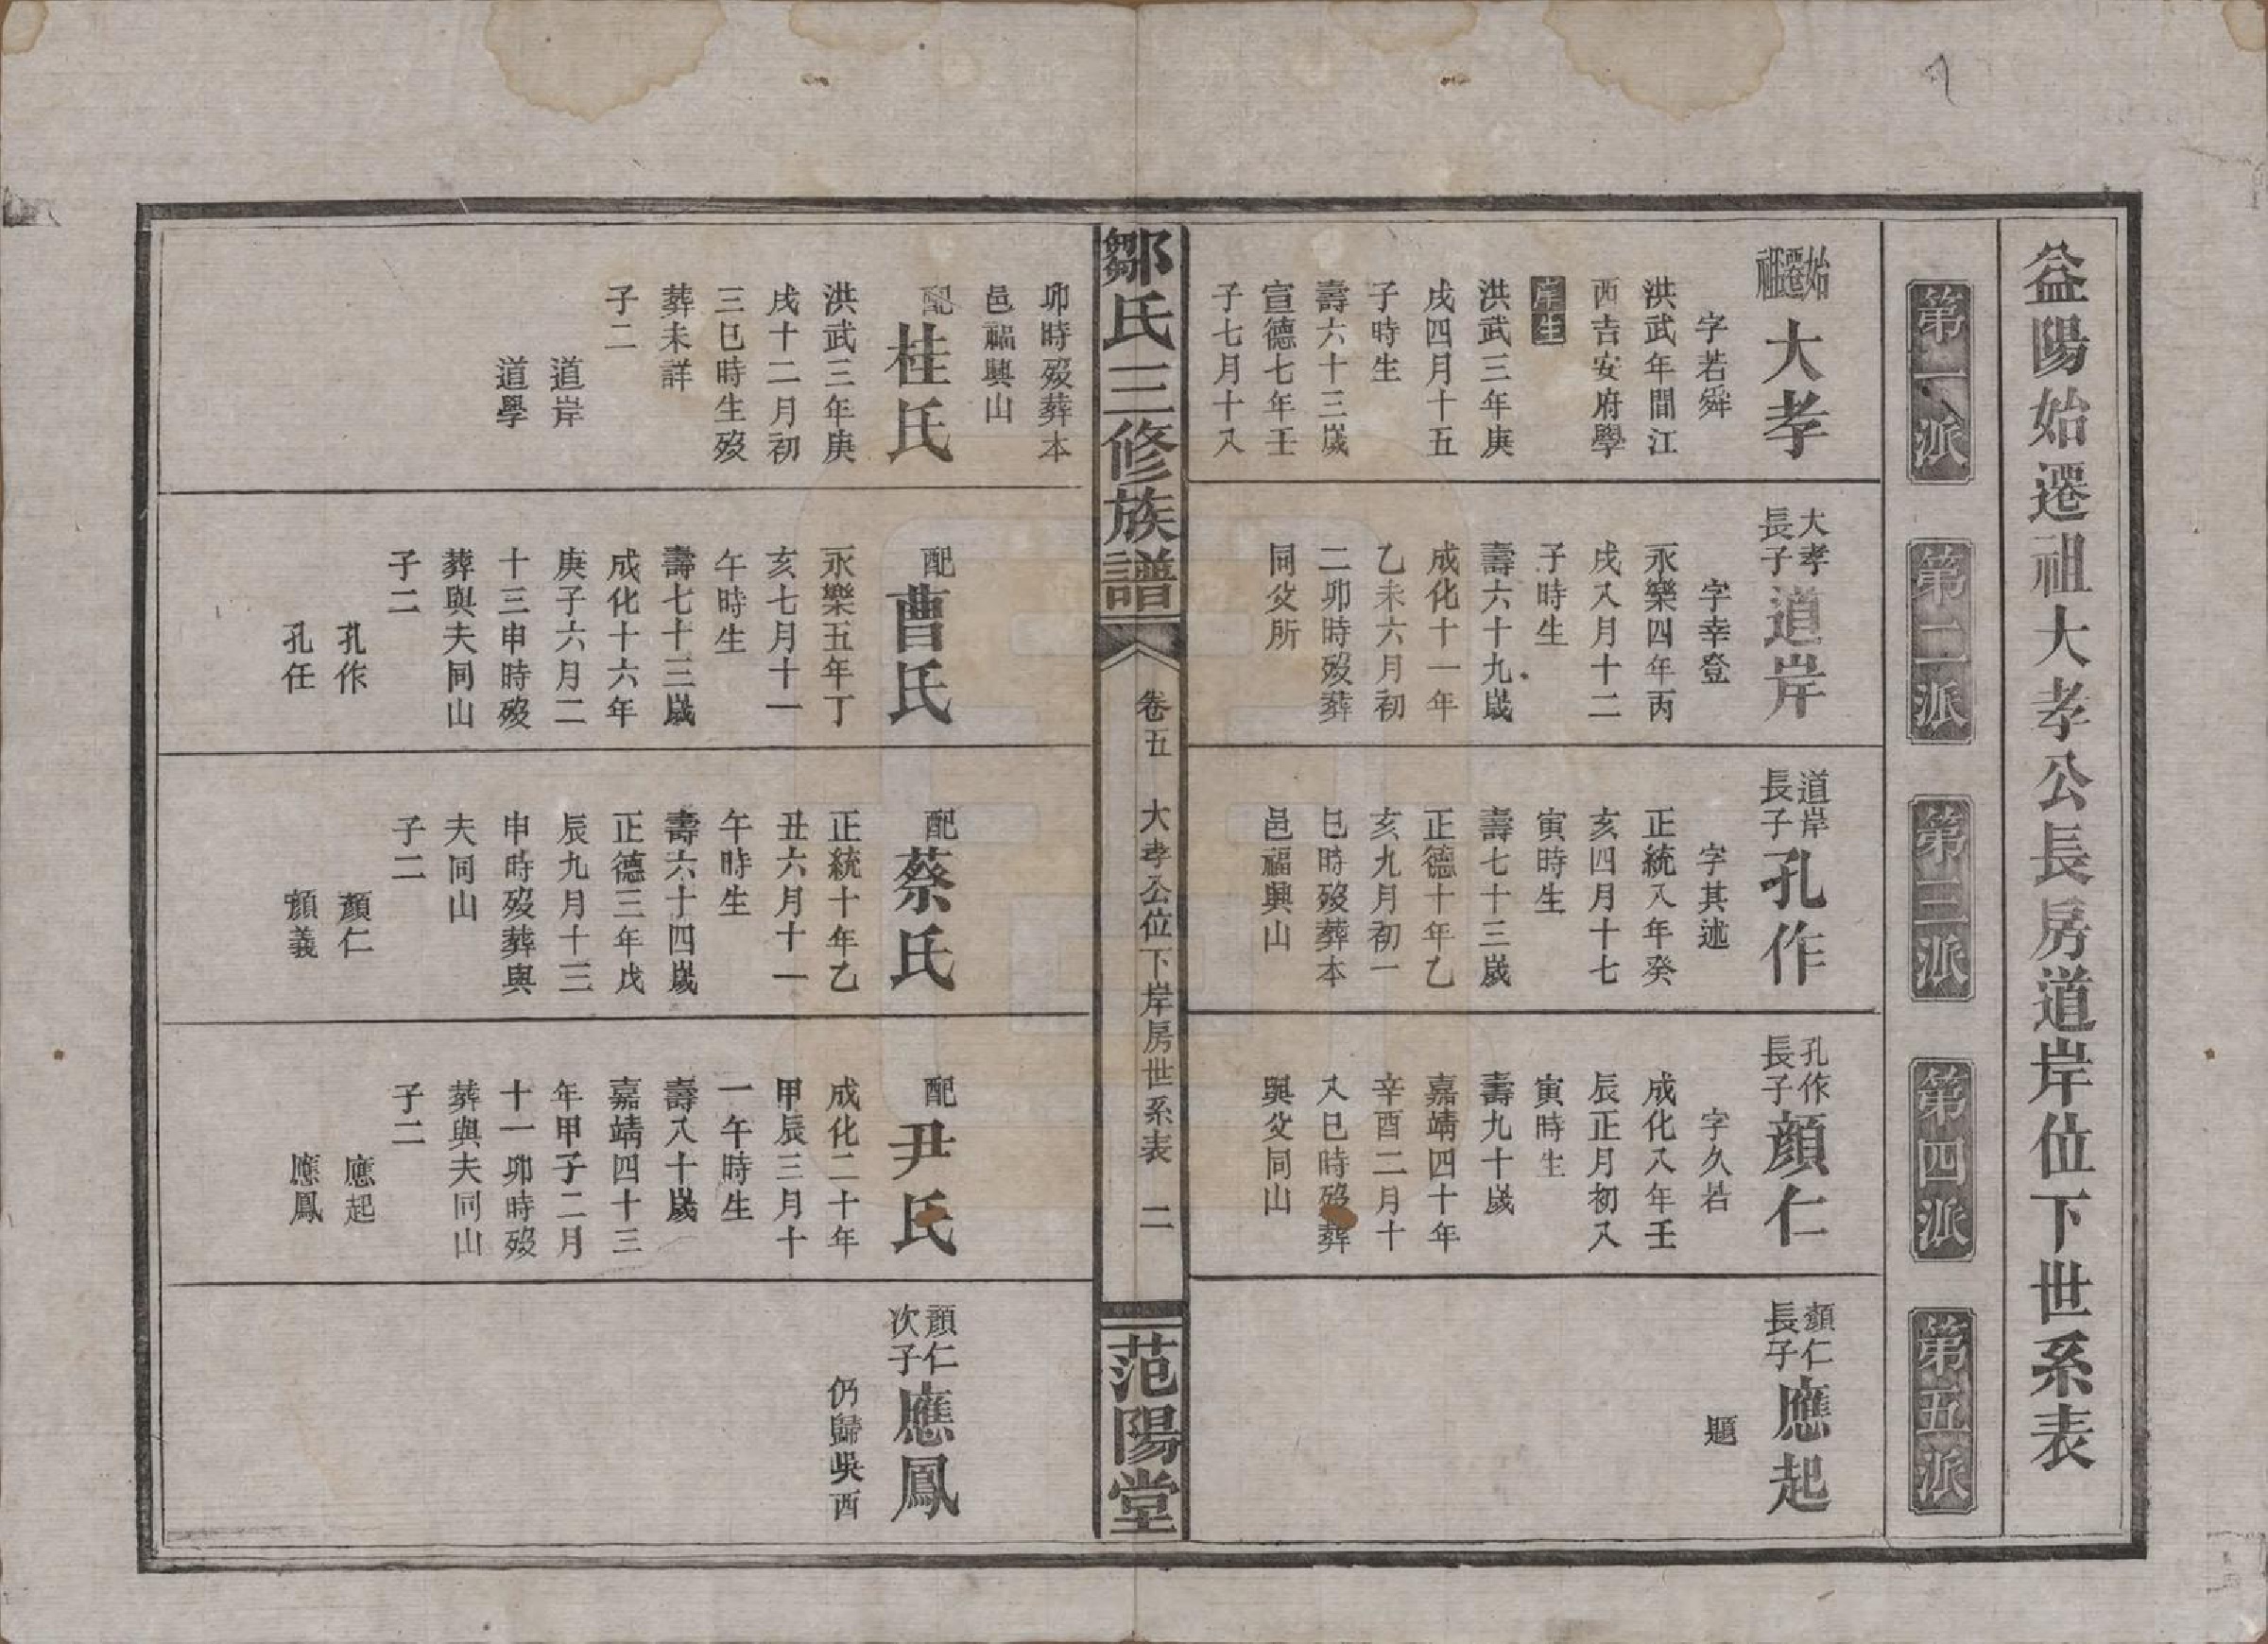 益陽始遷祖大孝公長房道岸位下世系表
第一派
第二派
第三派
第四派
第五派
始遷祖
大孝
字若舜
洪武年間江
西吉安府學
庠生
洪武三年庚
戌四月十五
子時生
壽六十三歲
宣德七年壬
子七月十八
大孝
長子
道岸
字幸登
永樂四年丙
戌八月十二
子時生
壽六十九歲
成化十一年
乙未六月初
二卯時歿葬
同父所
道岸
長子
孔作
字其述
正統八年癸
亥四月十七
寅時生
壽七十三歲
正德十年乙
亥九月初一
巳時歿葬本
邑福興山
孔作
長子
顏仁
字久若
成化八年壬
辰正月初八
寅時生
壽九十歲
嘉靖四十年
辛酉二月十
八巳時歿葬
與父同山
顏仁
長子
應起
題
鄒氏三修族譜
卷五
大孝公位下岸房世系表
二
范陽堂
卯時歿葬本
邑福興山
配
桂氏
洪武三年庚
戌十二月初
三巳時生歿
葬未詳
子二
道岸
道學
配
曹氏
永樂五年丁
亥七月十一
午時生
壽七十三歲
成化十六年
庚子六月二
十三申時歿
葬與夫同山
子二
孔作
孔任
配
蔡氏
正統十年乙
丑六月十一
午時生
壽六十四歲
正德三年戊
辰九月十三
申時歿葬與
夫同山
子二
顏仁
顏義
配
尹氏
成化二十年
甲辰三月十
一午時生
壽八十歲
嘉靖四十三
年甲子二月
十一卯時歿
葬與夫同山
子二
應起
應鳳
顏仁
次子
應鳳
仍歸吳西